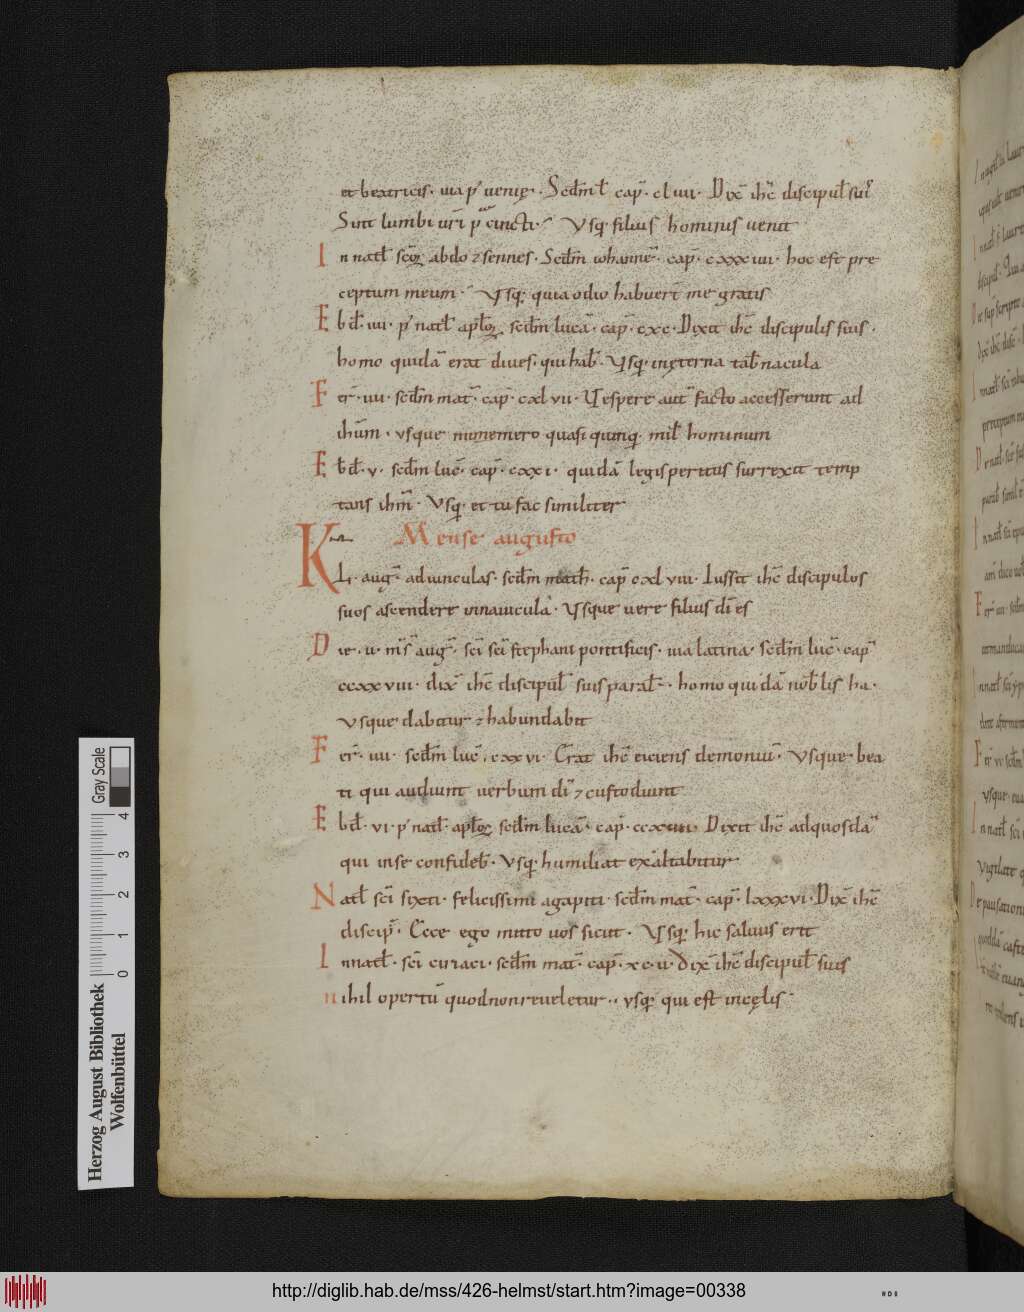 et beatricis· uia p̄ ueniẹ· Scd̄m l̄ cap̄· clıııı· Dix̄ ih̄c discipul̄ suis
Sint lumbi ur̄i p̄cincti· Vsq; filius hominis uenit
In natl̄ sc̄oꝝ abdo ⁊ sennes· Scd̄m iohannē· cap̄· cxxxıııı· hoc est pre
ceptum meum· Vsq; quia odio habuer̄t me gratis
Ebd̄· ıııı· p̄ natl̄ apl̄oꝝ scd̄m lucā· cap̄· cxc· Dixit ih̄c discipulis suis·
homo quidā erat diues· qui hab̄· Vsq; inęterna tab̄nacula
Fer̄· ıııı· scd̄m mat̄· cap̄· cxl vıı· Vespere aut̄ facto accesserunt ad
ihūm· vsque numemero quasi quinq; mil̄ hominum
Ebd̄· v· scd̄m luc̄· cap̄· cxxı· quidā legisperitus surrexit temp
tans ihm̄· Vsq; et tu fac similiter
Mense augusto
Kl· auḡ· aduinculas· scd̄m math̄· cap̄ cxl vııı· Iussit ih̄c discipulos
suos ascendere innauiculā· Vsque uere filius dī es
Die· ıı· m̄s auḡ· sc̄i stephani pontificis· uia latina· scd̄m luc̄· cap̄
ccxxvııı· dix̄ ih̄c discipul̄ suis paral̄· homo quidā nob̄lis ha·
vsque dabitur ⁊ habundabit
Fer̄· ıııı· scd̄m luc̄· cxxvı· Erat ih̄c eiciens demoniū· Vsque bea
ti qui audiunt uerbum dī ⁊ custodiunt
Ebd̄· vı· p̄ natl̄· apl̄oꝝ scd̄m lucā· cap̄· Dixit ih̄c adquosdā
qui inse confideb̄· Vsq; humiliat exaltabitur
Natl̄ sc̄i sixti· felicissimi agapiti· scd̄m mat̄· cap̄· lxxxvı· Dix̄ ih̄c
discip̄· Ecce ego mitto uos sicut· Vsq; hic saluus erit
In natl̄· sc̄i ciriaci· scd̄m mat̄· cap̄· xc·ıı· Dix̄ ih̄c discipul̄ suis
nihil opertū quod non reueletur·· vsq; qui est incęlis·
Herzog August Bibliothek
Wolfenbüttel
Gray Scale
0 1 2 3 4
http://diglib.hab.de/mss/426-helmst/start.htm?image=00338